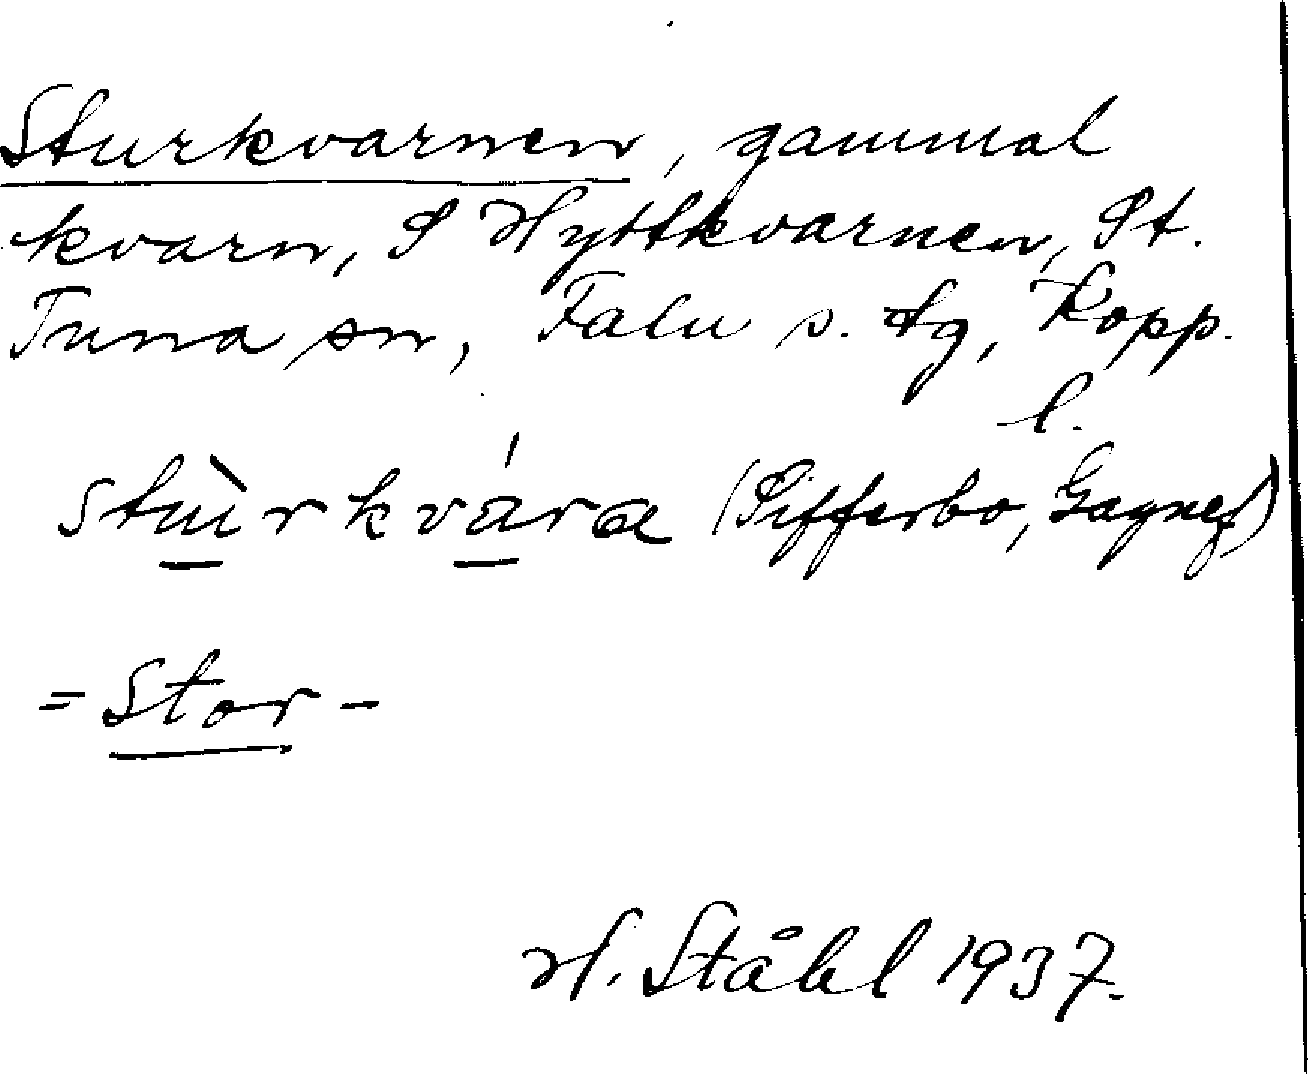 Sturkvarnen, gammal
kvarn, S Hyttkvarnen, St.
Tuna sn, Falu s. tg, Kopp.
l.
stùrkvára (Sifferbo, Gagnef)
= Stor -
H. Ståhl 1937.